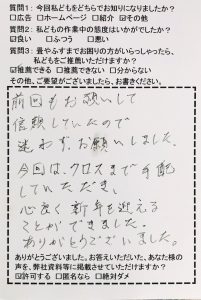 質問1：今回私どもをどちらでお知りになりましたか？
□広告 □ホームページ □紹介 ☑その他
質問2：私どもの作業中の態度はいかがでしたか？
☑良い □ふつう □悪い
質問3：畳やふすまでお困りの方がいらっしゃったら、
私どもをご推薦いただけますか？
☑推薦できる □推薦できない □分からない
その他、ご要望がございましたら、お書きください。
前回もお願いして
信頼していたので
迷わずお願いしました。
今回はクロスまで手配
していただき、
心良く新年を迎える
ことができました。
ありがとうございました。
ありがとうございました。お答えいただいた、あなた様の
声を、弊社資料等に掲載させていただけますか？
☑許可する □匿名なら □絶対ダメ